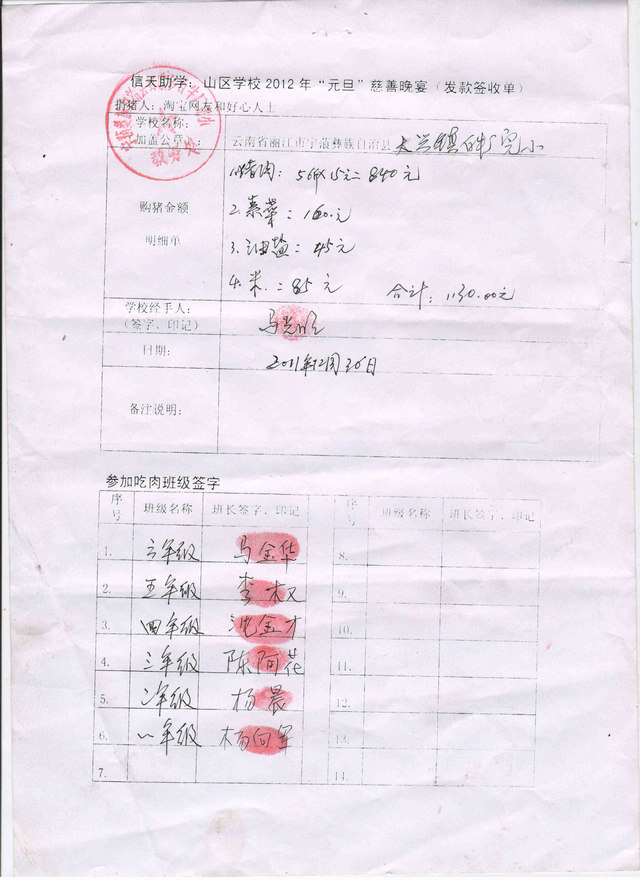 信天助学：山区学校2012年“元旦”慈善晚宴（发款签收单）
捐猪人：淘宝网友和好心人士
学校名称：
加盖公章）： 云南省丽江市宁蒗彝族自治县 大兴镇 完小
购猪金额
明细单
1.猪肉：56斤×15元=840元
2.素菜：160.元
3.油盐：45元
4.米：85元 合计：1130.00元
学校经手人：
（签字、印记）
日期： 2011年12月30日
备注说明：
参加吃肉班级签字
序号 班级名称 班长签字、印记 序号 班级名称 班长签字、印记
1. 六年级 马金华 8.
2. 五年级 李 9.
3. 四年级 沈金才 10.
4. 三年级 陈阿花 11.
5. 二年级 杨晨 12.
6. 一年级 杨向军 13.
7. 14.